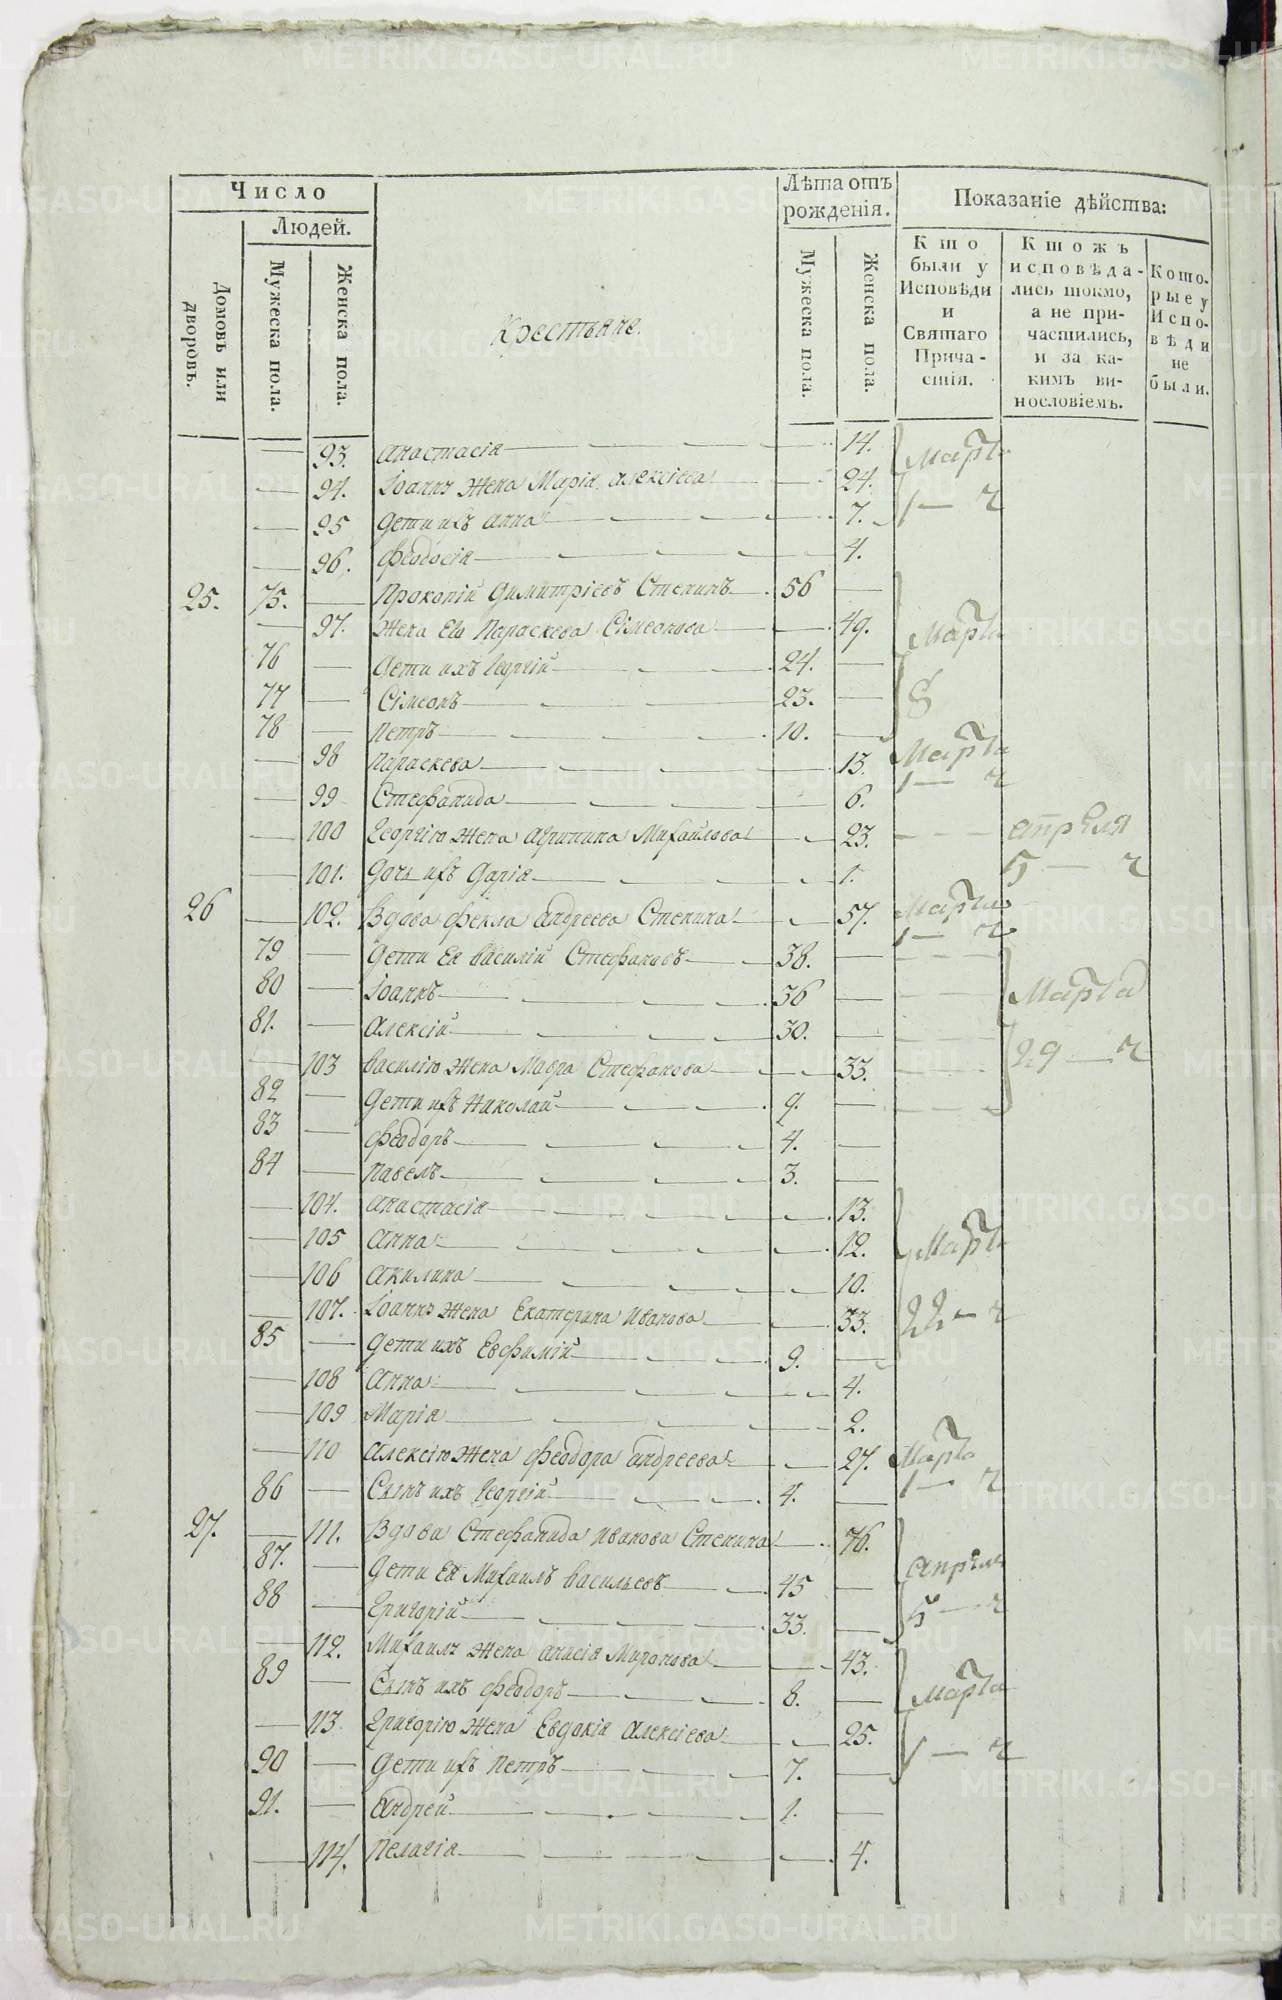 Число
Людей.
Домовъ или дворовъ.
Мужеска пола.
Женска пола.
Крестьяне.
Лѣта отъ рожденія.
Мужеска пола.
Женска пола.
Показаніе дѣйства:
Кто были у Исповѣди и Святаго Причастія.
Ктожъ исповѣдались токмо, а не причастились, и за какимъ винословіемъ.
Которые у Исповѣди не были.
93. Анастасія 14. Марта
94. Іоаннъ жена Марія Алексіева 24.
95 Дети ихъ Анна 7. 1 — ч
96. Феодосія 4.
25. 75. Прокопій Димитріевъ Стенинъ 56
97. Жена Его Параскева Сімеонова 49. Марта
76 Дети ихъ Георгій 24.
77 Сімеонъ 23. 8
78 Петръ 10.
98 Параскева 13. Марта
99 Стефанида 6. 1 — ч
100 Георгію жена Агрипина Михайлова 23. Апрѣля
101. Дочь ихъ Дарія 1. 5 — ч
26 102. Вдова Фекла Андреева Стенина 57. Марта 1 — ч
79 Дети Ея Василій Стефановъ 38.
80 Іоаннъ 36 Марта
81. Алексій 30.
103 Василію жена Мавра Стефанова 33. 29 — ч
82 Дети ихъ Николай 9.
83 Феодоръ 4.
84 Павелъ 3.
104. Анастасія 13.
105 Анна 12. Марта
106 Акилина 10.
107. Іоаннъ жена Екатерина Иванова 33. 22 — ч
85 Дети ихъ Евфимій 9.
108 Анна 4.
109 Марія 2.
110 Алексію жена Феодора Андреева 27. Марта
86 Сынъ ихъ Георгій 4. 1 — ч
27. 111. Вдова Стефанида Иванова Стенина 76.
87. Дети Ея Михаилъ Васильевъ 45 Апрѣля
88 Григорій 33. 5 — ч
112. Михаилъ жена Анисія Миронова 43.
89 Сынъ ихъ Феодоръ 8. Марта
113 Григорію жена Евдокія Алексіева 25.
90 Дети ихъ Петръ 7. 1 — ч
91. Андрей 1.
114. Пелагія 4.
METRIKI.GASO-URAL.RU